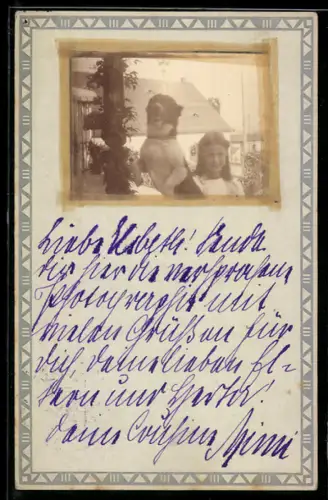 Liebe Elsbeth! Sende
dir hier die versprochene
Photographie mit
vielen Grüßen für
dich, deine lieben El-
tern und Herta!
deine Cousine Mimi